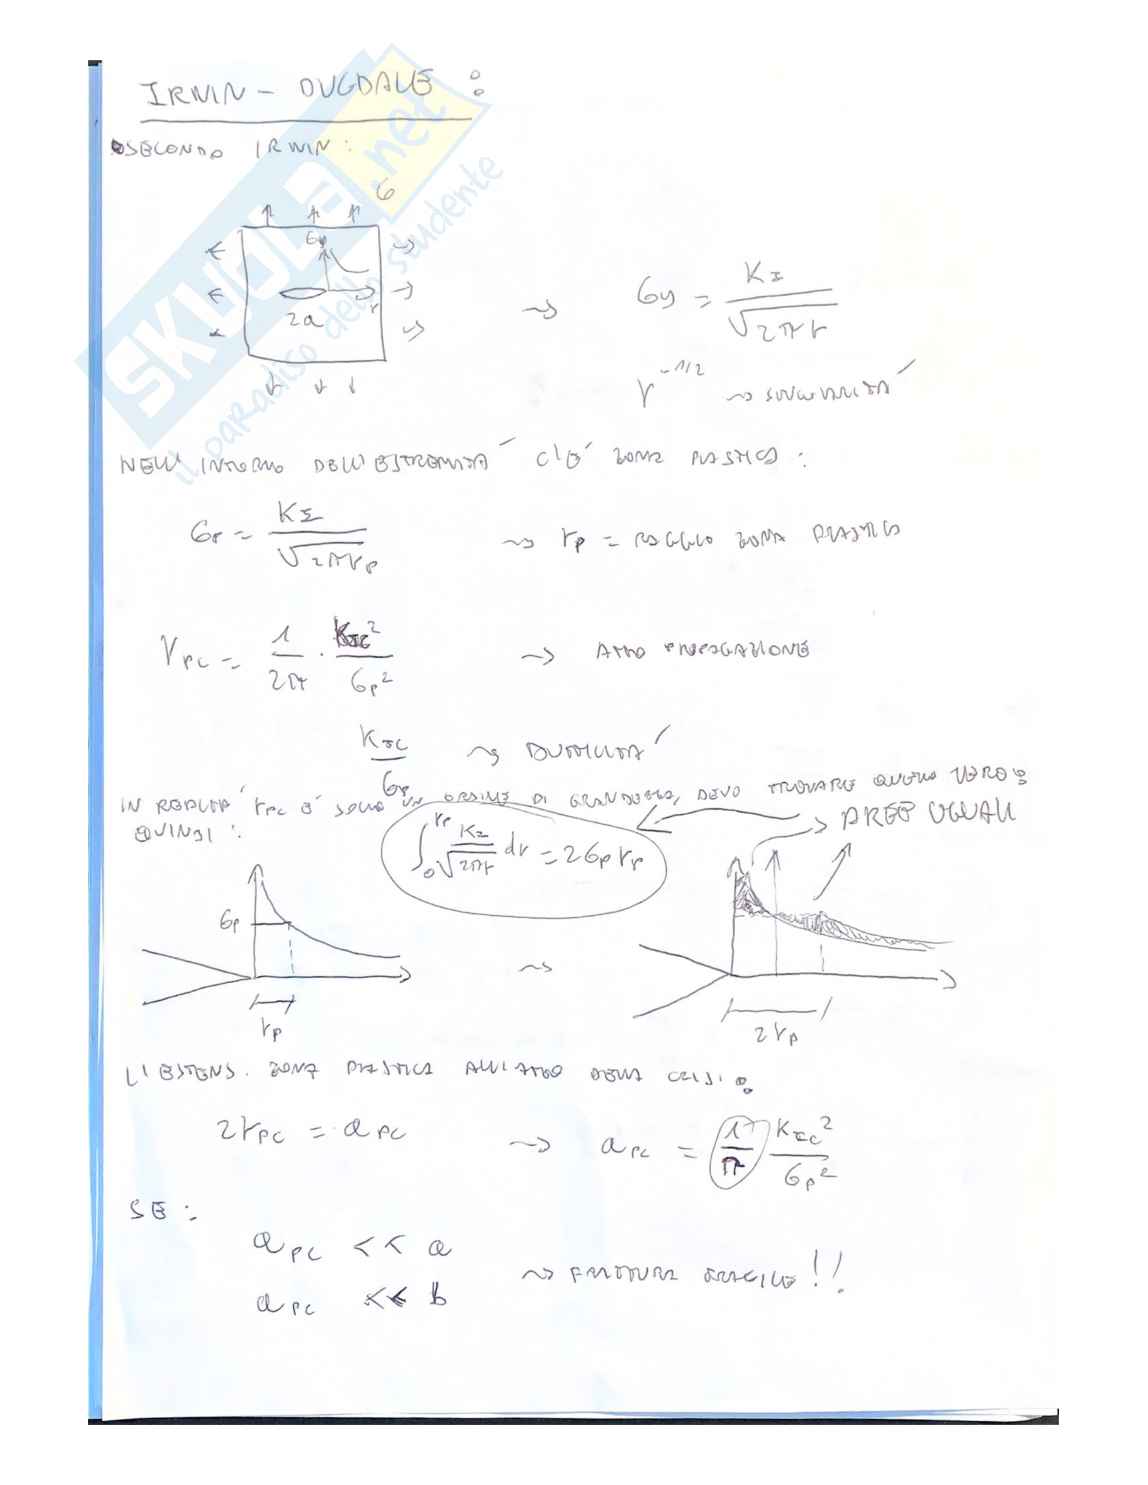 IRWIN - DUGDALE :
SECONDO IRWIN :
σ
σy
r
2a
→ σy = KI / √2πr
r^-1/2 → SINGOLARITÀ
NELL' INTORNO DELL'ESTREMITÀ C'È ZONA PLASTICA :
σp = KI / √2πrp → rp = RAGGIO ZONA PLASTICA
rpc = 1/2π · KIC²/σp² → ATTO PROPAGAZIONE
KIC/σp → DUTTILITÀ
IN REALTÀ rpc È SOLO UN ORDINE DI GRANDEZZA, DEVO TROVARE QUELLO VERO
QUINDI :
∫0^rp KI/√2πr dr = 2σp rp
AREE UGUALI
σp
rp
→
2rp
L'ESTENS. ZONA PLASTICA ALL'ATTO DELLA CRISI :
2rpc = apc → apc = 1/π KIC²/σp²
SE :
apc << a
apc << b
→ FRATTURA FRAGILE !!
SKUOLA.net
il paradiso dello studente